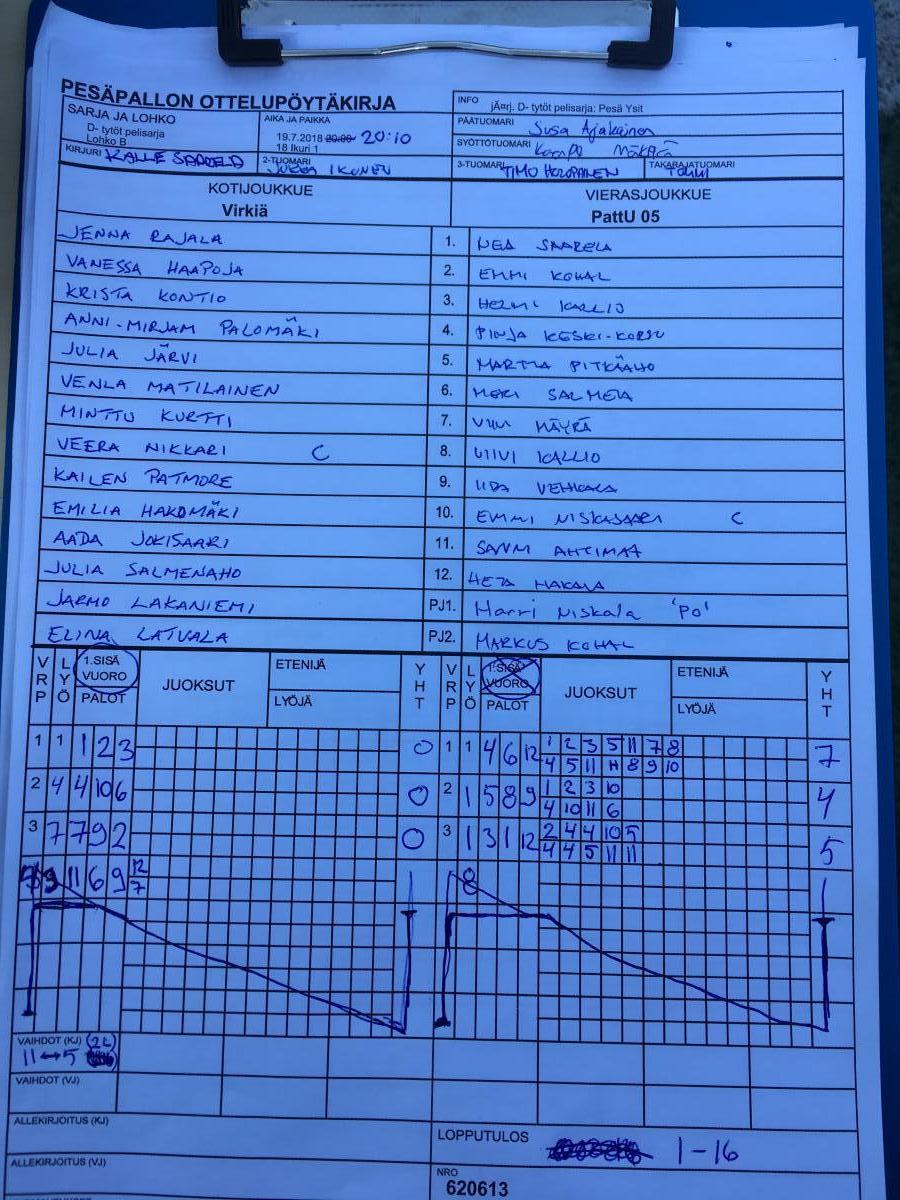 PESÄPALLON OTTELUPÖYTÄKIRJA
SARJA JA LOHKO
D- tytöt pelisarja
Lohko B
AIKA JA PAIKKA
19.7.2018 20:00 20:10
18 Ikuri 1
INFO
jÄrrj. D- tytöt pelisarja: Pesä Ysit
PÄÄTUOMARI Susa Ajakainen
SYÖTTÖTUOMARI
KIRJURI KALLE
2-TUOMARI IKONEN
3-TUOMARI TIMO HOLOPAINEN
TAKARAJATUOMARI
KOTIJOUKKUE
Virkiä
VIERASJOUKKUE
PattU 05
JENNA RAJALA 1. NEA SAARELA
VANESSA HAAPOJA 2. EMMI KOHAL
KRISTA KONTIO 3. HELMI KALLIO
ANNI-MIRJAM PALOMÄKI 4. PINJA KESKI-KORSU
JULIA JÄRVI 5. MARTTA PITKÄAHO
VENLA MATILAINEN 6. MERI SALMELA
MINTTU KURTTI 7. VIIVI MÄYRÄ
VEERA NIKKARI C 8. VIIVI KALLIO
KAILEN PATMORE 9. IIDA
EMILIA HAKOMÄKI 10. EMMI NISKASAARI C
AADA JOKISAARI 11. SANNI AHTIMAA
JULIA SALMENAHO 12. HETA HAKALA
JARMO LAKANIEMI PJ1. Harri Niskala 'PO'
ELINA LATVALA PJ2. MARKUS KOHAL
VRP LYÖ 1.SISÄ VUORO PALOT JUOKSUT ETENIJÄ LYÖJÄ YHT VRP LYÖ 1.SISÄ VUORO PALOT JUOKSUT ETENIJÄ LYÖJÄ YHT
1 1 1 2 3 0 1 1 4 6 12 1 2 3 5 11 7 8 7
4 5 11 8 9 10
2 4 4 10 6 0 2 1 5 8 9 1 2 3 10 4
4 10 11 6
3 7 7 9 2 0 3 1 3 1 12 2 4 4 10 5 5
4 4 5 11 11
9 11 6 9 12 1 8
7
VAIHDOT (KJ) (2L)
11↔5
VAIHDOT (VJ)
ALLEKIRJOITUS (KJ)
LOPPUTULOS 1-16
ALLEKIRJOITUS (VJ)
NRO
620613